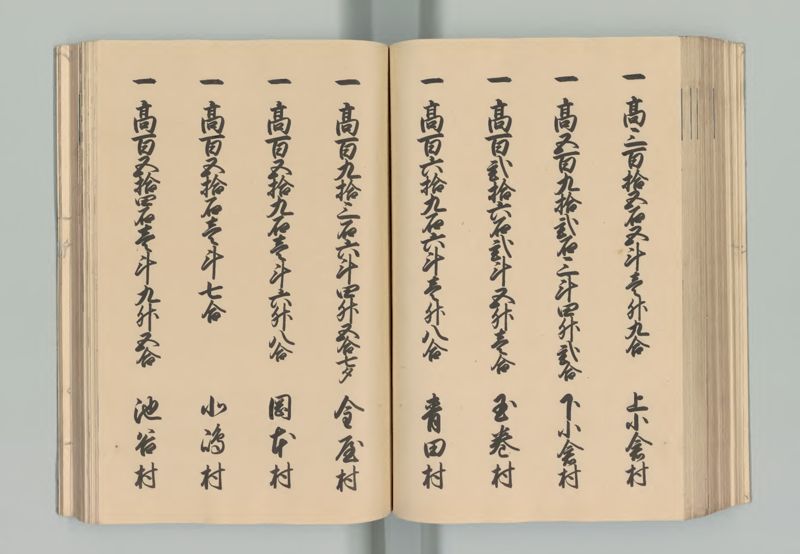 一高三百拾五石五斗壱升九合 上小倉村
一高五百九拾弐石三斗四升弐合 下小倉村
一高百弐拾六石弐斗五升壱合 玉巻村
一高百六拾九石六斗壱升八合 青田村
一高百九拾三石六斗四升五合七夕 今屋村
一高百五拾九石壱斗六升八合 岡本村
一高百五拾石壱斗七合 小嶋村
一高百五拾四石壱斗九升五合 池谷村